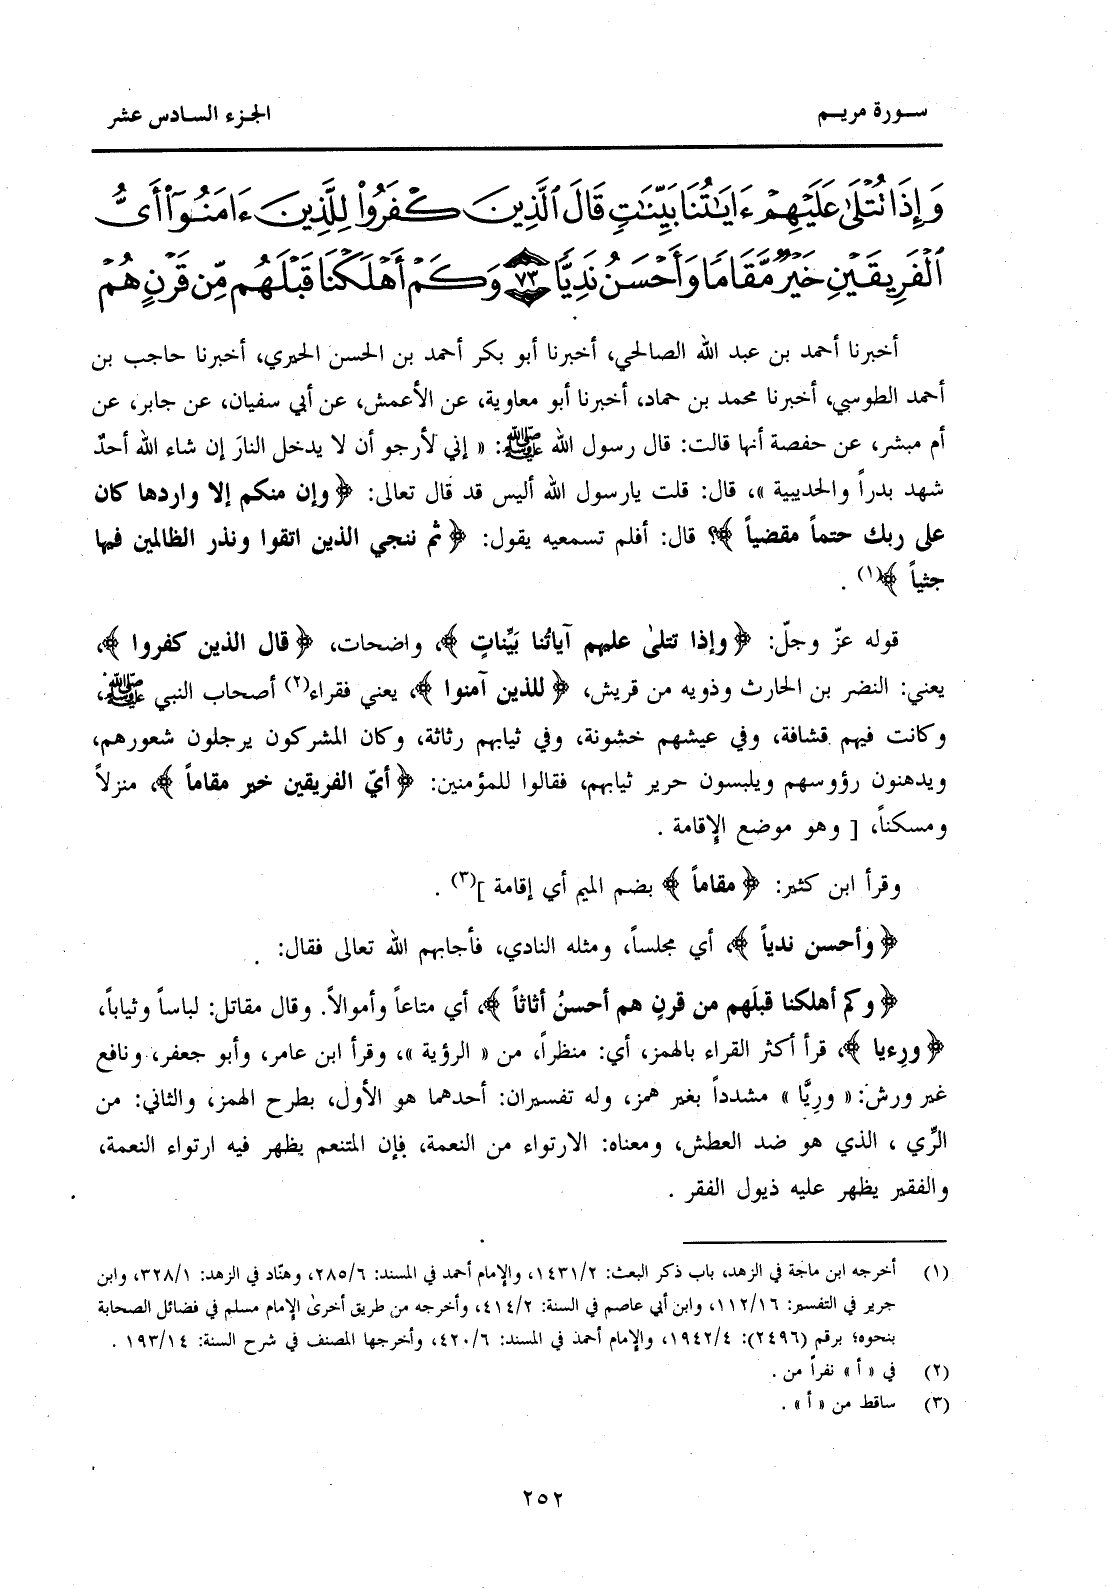 سورة مريم
الجزء السادس عشر
وَإِذَا تُتْلَىٰ عَلَيْهِمْ ءَايَٰتُنَا بَيِّنَٰتٍ قَالَ ٱلَّذِينَ كَفَرُوا۟ لِلَّذِينَ ءَامَنُوٓا۟ أَىُّ
ٱلْفَرِيقَيْنِ خَيْرٌ مَّقَامًا وَأَحْسَنُ نَدِيًّا ﴿٧٣﴾ وَكَمْ أَهْلَكْنَا قَبْلَهُم مِّن قَرْنٍ هُمْ
أخبرنا أحمد بن عبد الله الصالحي، أخبرنا أبو بكر أحمد بن الحسن الحيري، أخبرنا حاجب بن
أحمد الطوسي، أخبرنا محمد بن حماد، أخبرنا أبو معاوية، عن الأعمش، عن أبي سفيان، عن جابر، عن
أم مبشر، عن حفصة أنها قالت: قال رسول الله ﷺ: « إني لأرجو أن لا يدخل النارَ إن شاء الله أحدٌ
شهد بدراً والحديبية »، قال: قلت يارسول الله أليس قد قال تعالى: ﴿ وإن منكم إلا واردها كان
على ربك حتماً مقضياً ﴾؟ قال: أفلم تسمعيه يقول: ﴿ ثم ننجي الذين اتقوا ونذر الظالمين فيها
جثياً ﴾(١) .
قوله عزّ وجلّ: ﴿ وإذا تتلىٰ عليهم آياتُنا بَيِّناتٍ ﴾، واضحات، ﴿ قال الذين كفروا ﴾،
يعني: النضر بن الحارث وذويه من قريش، ﴿ للذين آمنوا ﴾، يعني فقراء(٢) أصحاب النبي ﷺ،
وكانت فيهم قشافة، وفي عيشهم خشونة، وفي ثيابهم رثاثة، وكان المشركون يرجلون شعورهم،
ويدهنون رؤوسهم ويلبسون حرير ثيابهم، فقالوا للمؤمنين: ﴿ أيّ الفريقين خير مقاماً ﴾، منزلاً
ومسكناً، [ وهو موضع الإقامة .
وقرأ ابن كثير: ﴿ مقاماً ﴾ بضم الميم أي إقامة ](٣) .
﴿ وأحسن ندياً ﴾، أي مجلساً، ومثله النادي، فأجابهم الله تعالى فقال:
﴿ وكم أهلكنا قبلَهم من قرنٍ هم أحسنُ أثاثاً ﴾، أي متاعاً وأموالاً. وقال مقاتل: لباساً وثياباً،
﴿ ورِءيا ﴾، قرأ أكثر القراء بالهمز، أي: منظراً، من « الرؤية »، وقرأ ابن عامر، وأبو جعفر، ونافع
غير ورش: « ورِيًّا » مشدداً بغير همز، وله تفسيران: أحدهما هو الأول، بطرح الهمز، والثاني: من
الرِّي ، الذي هو ضد العطش، ومعناه: الارتواء من النعمة، فإن المتنعم يظهر فيه ارتواء النعمة،
والفقير يظهر عليه ذيول الفقر .
(١) أخرجه ابن ماجة في الزهد، باب ذكر البعث: ١٤٣١/٢، والإمام أحمد في المسند: ٢٨٥/٦، وهنّاد في الزهد: ٣٢٨/١، وابن
جرير في التفسير: ١١٢/١٦، وابن أبي عاصم في السنة: ٤١٤/٢، وأخرجه من طريق أخرىٰ الإمام مسلم في فضائل الصحابة
بنحوه؛ برقم (٢٤٩٦): ١٩٤٢/٤، والإمام أحمد في المسند: ٤٢٠/٦، وأخرجها المصنف في شرح السنة: ١٩٣/١٤ .
(٢) في « أ » نفراً من .
(٣) ساقط من « أ » .
٢٥٢